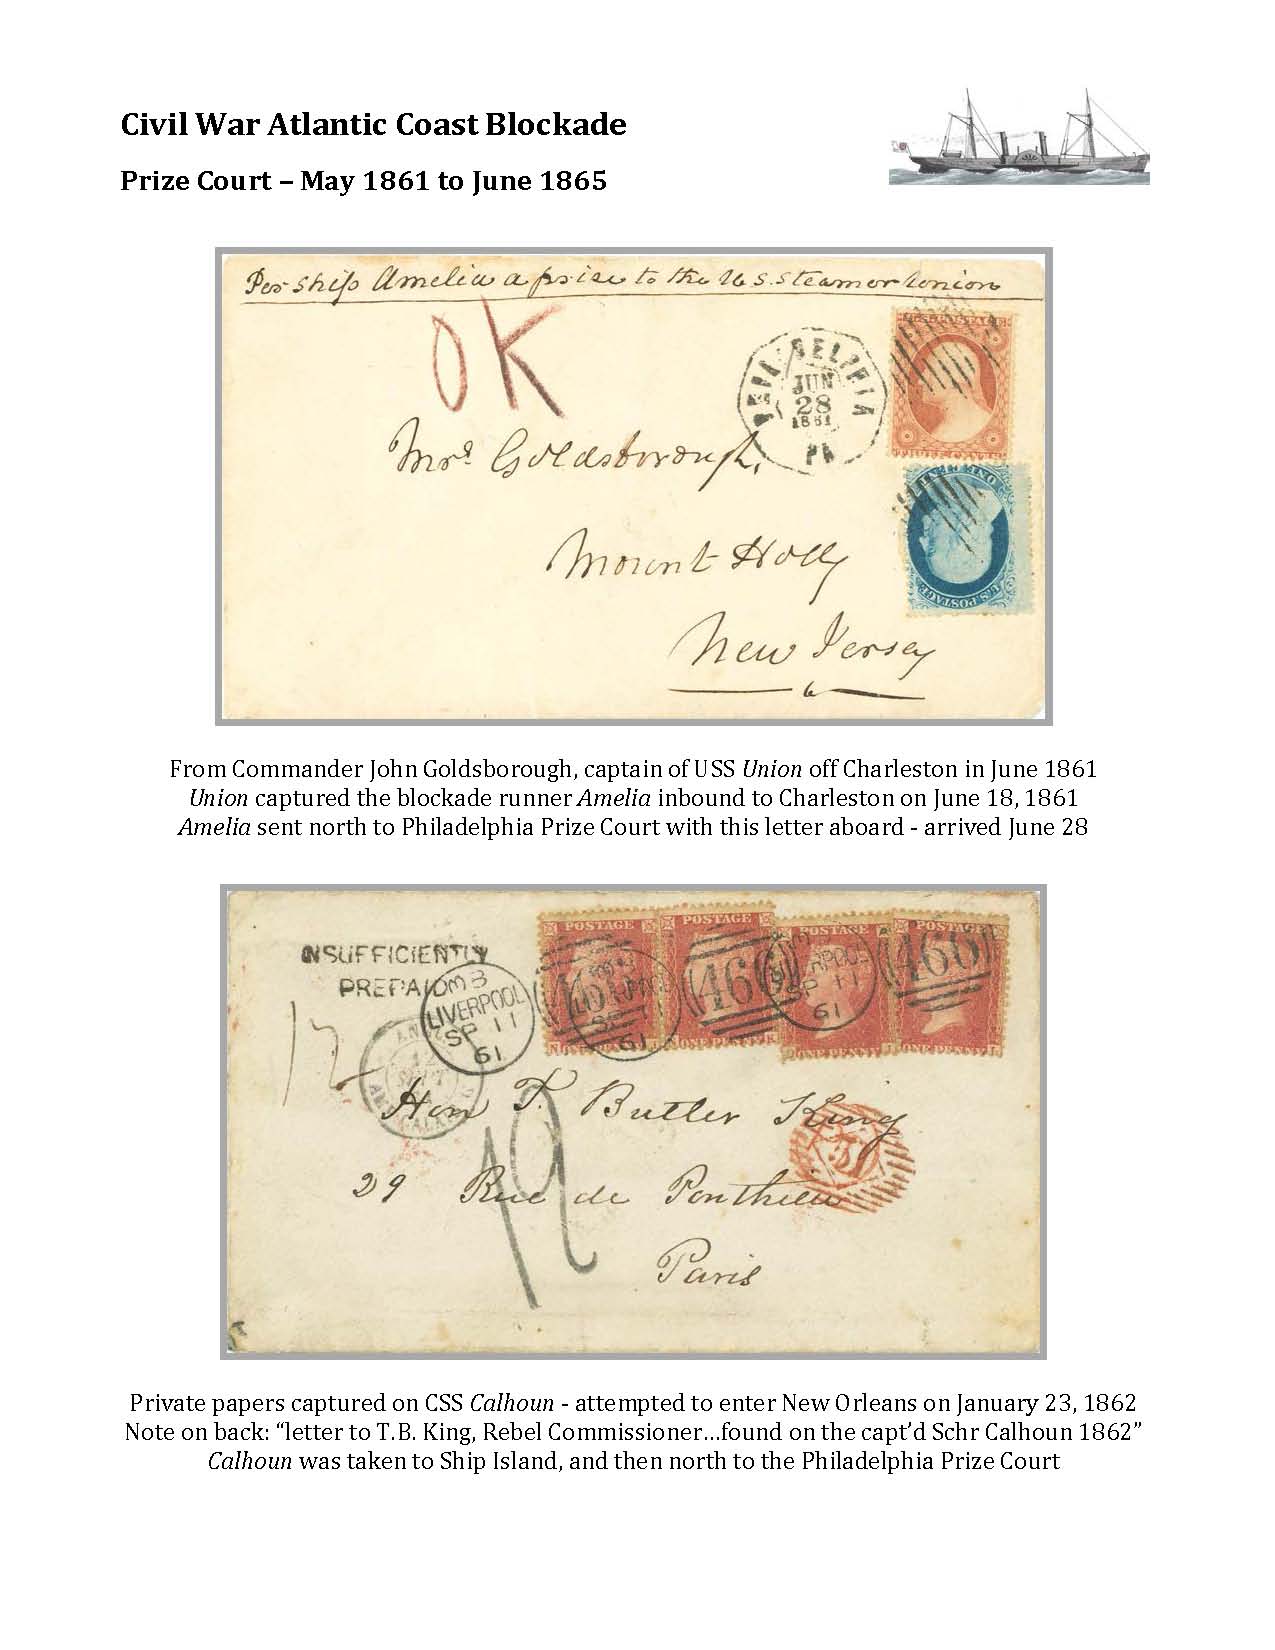 Civil War Atlantic Coast Blockade
Prize Court – May 1861 to June 1865
Per ship Amelia a prize to the U.S. steamer Union
OK
PHILADELPHIA
JUN
28
1861
PA
Mrs. Goldsborough,
Mount Holly
New Jersey
ONE CENT
U.S. POSTAGE
From Commander John Goldsborough, captain of USS Union off Charleston in June 1861
Union captured the blockade runner Amelia inbound to Charleston on June 18, 1861
Amelia sent north to Philadelphia Prize Court with this letter aboard - arrived June 28
POSTAGE POSTAGE POSTAGE POSTAGE
INSUFFICIENTLY
PREPAID
LIVERPOOL
SP 11
61
466 466
LIVERPOOL
SP 11
61
ONE PENNY ONE PENNY ONE PENNY ONE PENNY
12
Hon T. Butler King
19
29 Rue de Ponthieu
Paris
Private papers captured on CSS Calhoun - attempted to enter New Orleans on January 23, 1862
Note on back: “letter to T.B. King, Rebel Commissioner…found on the capt’d Schr Calhoun 1862”
Calhoun was taken to Ship Island, and then north to the Philadelphia Prize Court